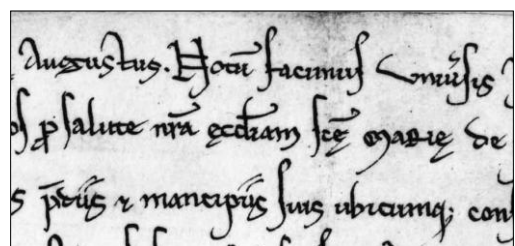 Augustus. Notū facimus univ̄sis
p̄ salute nr̄a ęccl̄iam scę̄ Marię de
s p̄diis & mancipiis suis ubicumq; con